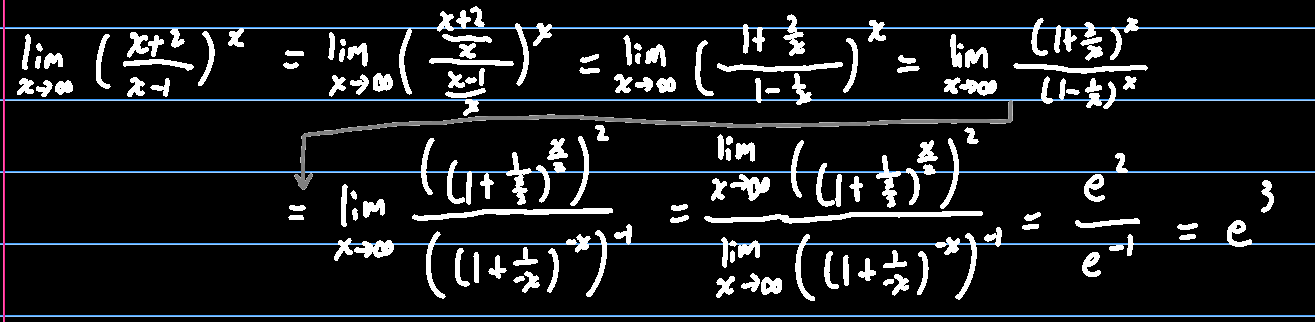 lim x→∞ ((x+2)/(x-1))^x = lim x→∞ (((x+2)/x)/((x-1)/x))^x = lim x→∞ ((1+2/x)/(1-1/x))^x = lim x→∞ (1+2/x)^x/(1-1/x)^x
= lim x→∞ ((1+1/(x/2))^(x/2))^2/((1+1/(-x))^(-x))^(-1) = lim x→∞ ((1+1/(x/2))^(x/2))^2/lim x→∞ ((1+1/(-x))^(-x))^(-1) = e^2/e^(-1) = e^3